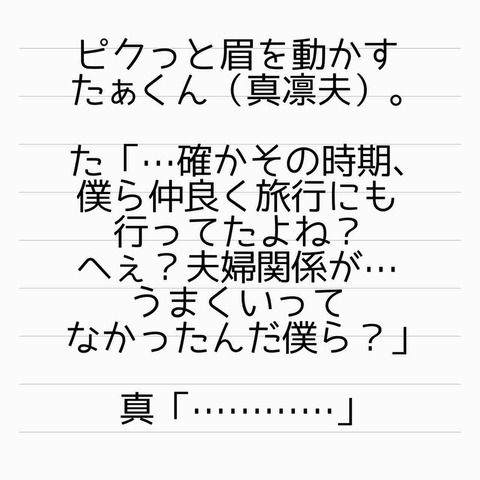 ピクっと眉を動かす
たぁくん（真凛夫）。
た「…確かその時期、
僕ら仲良く旅行にも
行ってたよね？
へぇ？夫婦関係が…
うまくいって
なかったんだ僕ら？」
真「…………」